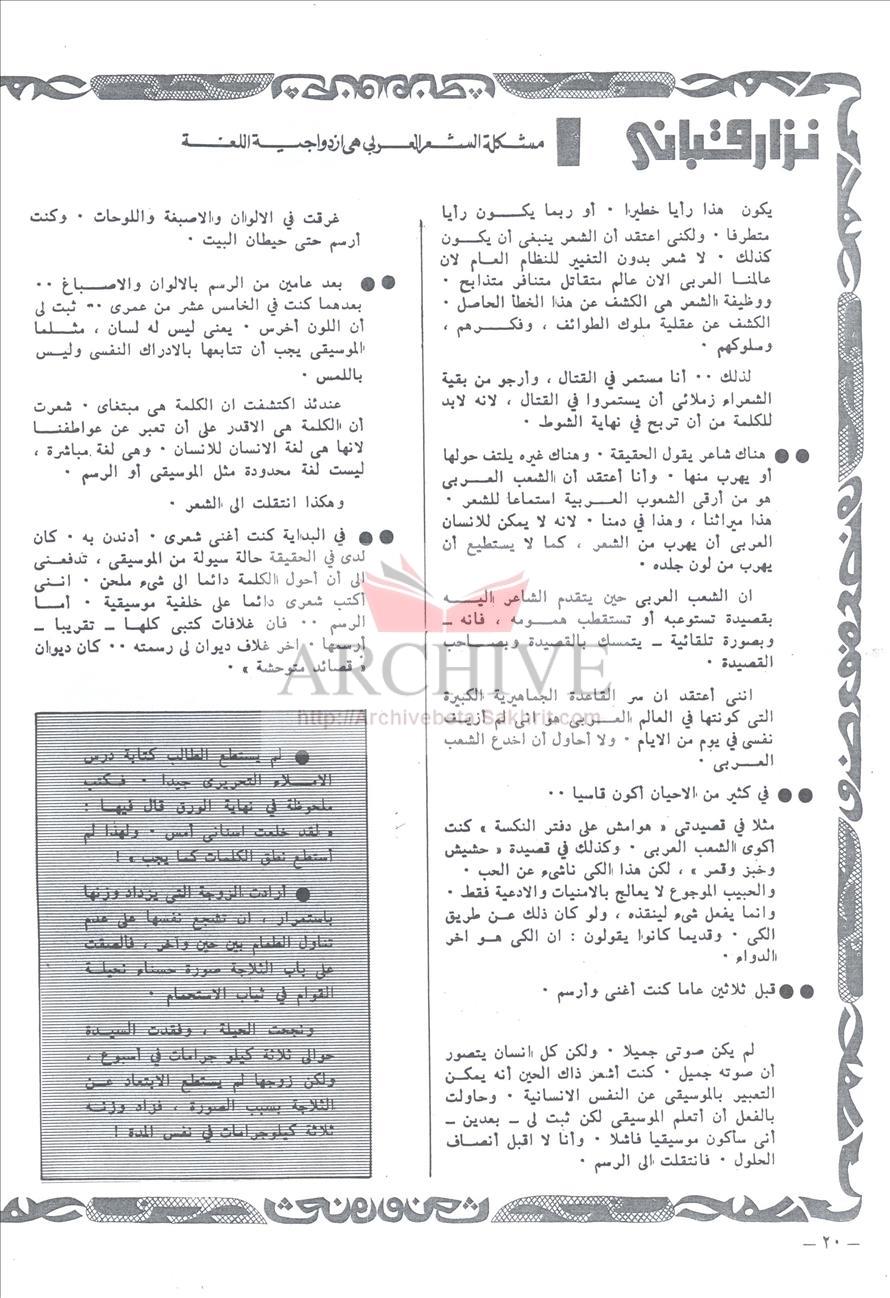 نزار قباني
مشكلة الشعر العربي هي ازدواجية اللغة
يكون هذا رأيا خطيرا ٠ أو ربما يكون رأيا
متطرفا ٠ ولكنى اعتقد أن الشعر ينبغى أن يكون
كذلك ٠ لا شعر بدون التغيير للنظام العام لان
عالمنا العربى الان عالم متقاتل متنافر متذابح ٠
ووظيفة الشعر هى الكشف عن هذا الخطأ الحاصل ٠
الكشف عن عقلية ملوك الطوائف ، وفكرهم ،
وسلوكهم ٠
لذلك ٠٠ أنا مستمر في القتال ، وأرجو من بقية
الشعراء زملائى أن يستمروا في القتال ، لانه لابد
للكلمة من أن تربح في نهاية الشوط ٠
●● هناك شاعر يقول الحقيقة ٠ وهناك غيره يلتف حولها
أو يهرب منها ٠ وأنا أعتقد أن الشعب العربى
هو من أرقى الشعوب العربية استماعا للشعر ٠
هذا ميراثنا ، وهذا في دمنا ٠ لانه لا يمكن للانسان
العربى أن يهرب من الشعر ، كما لا يستطيع أن
يهرب من لون جلده ٠
ان الشعب العربى حين يتقدم الشاعر اليه
بقصيدة تستوعبه أو تستقطب همومه ، فانه ــ
وبصورة تلقائية ــ يتمسك بالقصيدة وبصاحب
القصيدة ٠
اننى أعتقد ان سر القاعدة الجماهيرية الكبيرة
التى كونتها في العالم العربى هو انى لم ازيف
نفسى في يوم من الايام ٠ ولا أحاول أن اخدع الشعب
العربى ٠
●● في كثير من الاحيان أكون قاسيا ٠٠
مثلا في قصيدتى « هوامش على دفتر النكسة » كنت
أكوى الشعب العربى ٠ وكذلك في قصيدة « حشيش
وخبز وقمر » ، لكن هذا الكى ناشىء عن الحب ٠
والحبيب الموجوع لا يعالج بالامنيات والادعية فقط ٠
وانما يفعل شىء لينقذه ، ولو كان ذلك عن طريق
الكى ٠ وقديما كانوا يقولون : ان الكى هو اخر
الدواء ٠
●● قبل ثلاثين عاما كنت أغنى وأرسم ٠
لم يكن صوتى جميلا ٠ ولكن كل انسان يتصور
أن صوته جميل ٠ كنت أشعر ذاك الحين أنه يمكن
التعبير بالموسيقى عن النفس الانسانية ٠ وحاولت
بالفعل أن أتعلم الموسيقى لكن ثبت لى ــ بعدين ــ
أنى سأكون موسيقيا فاشلا ٠ وأنا لا اقبل أنصاف
الحلول ٠ فانتقلت الى الرسم ٠
غرقت في الالوان والاصبغة واللوحات ٠ وكنت
أرسم حتى حيطان البيت ٠
●● بعد عامين من الرسم بالالوان والاصباغ ٠٠
بعدهما كنت في الخامس عشر من عمرى ٠٠ ثبت لى
أن اللون أخرس ٠ يعنى ليس له لسان ، مثلما
الموسيقى يجب أن تتابعها بالادراك النفسى وليس
باللمس ٠
عندئذ اكتشفت ان الكلمة هى مبتغاى ٠ شعرت
أن الكلمة هى الاقدر على أن تعبر عن عواطفنا
لانها هى لغة الانسان للانسان ٠ وهى لغة مباشرة ،
ليست لغة محدودة مثل الموسيقى أو الرسم ٠
وهكذا انتقلت الى الشعر ٠
●● في البداية كنت أغنى شعرى ٠ أدندن به ٠ كان
لدى في الحقيقة حالة سيولة من الموسيقى ، تدفعنى
الى أن أحول الكلمة دائما الى شىء ملحن ٠ اننى
أكتب شعرى دائما على خلفية موسيقية ٠ أما
الرسم ٠٠ فان غلافات كتبى كلها ــ تقريبا ــ
أرسمها ٠ اخر غلاف ديوان لى رسمته ٠٠ كان ديوان
« قصائد متوحشة » ٠
● لم يستطع الطالب كتابة درس
الاملاء التحريرى جيدا ٠ فكتب
ملحوظة في نهاية الورق قال فيها :
« لقد خلعت اسنانى أمس ٠ ولهذا لم
أستطع نطق الكلمات كما يجب » !
● أرادت الزوجة التى يزداد وزنها
باستمرار ، ان تشجع نفسها على عدم
تناول الطعام بين حين واخر ، فالصقت
على باب الثلاجة صورة حسناء نحيلة
القوام في ثياب الاستحمام ٠
ونجحت الحيلة ، وفقدت السيدة
حوالى ثلاثة كيلو جرامات في أسبوع ،
ولكن زوجها لم يستطع الابتعاد عن
الثلاجة بسبب الصورة ، فزاد وزنه
ثلاثة كيلوجرامات في نفس المدة !
ARCHIVE
http://Archivebeta.Sakhrit.com
– ٢٠ –